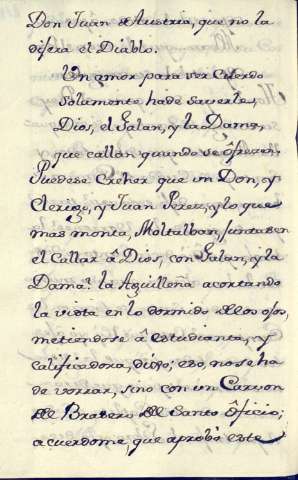 Don Juan de Austria, que no la
dixera el Diablo.
Un amor para ser Cuerdo
solamente ha de saverle,
Dios, el Galan, y la Dama,
que callan quando se ôfrecen.
Puedese Creher que un Don, y
Clerigo, y Juan Perez, y lo que
mas monta, Moltalban, juntasen
el Callar â Dios, con Galan, y la
Dama? la Aguileña acortando
la vista en lo dormido de los ojos,
metiendose â estudianta, y
calificadora, dixo; eso, no se ha
de vorrar, sino con un Carvon
del Brasero del Santo ôficio;
acuerdome, que aprobò este